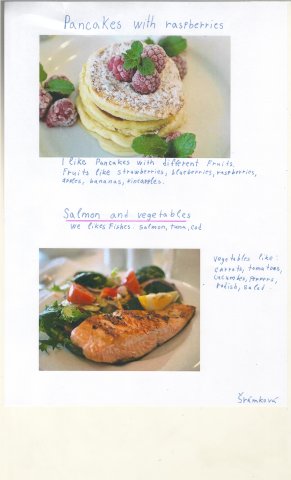 Pancakes with raspberries
I like Pancakes with different Fruits.
Fruits like strawberries, blueberries, raspberries,
apples, bananas, pineapples.
Salmon and vegetables
We likes Fishes. Salmon, tuna, cod
vegetables like:
carrots, tomatoes,
cucumber, peppers,
radish, salad.
Šrámková